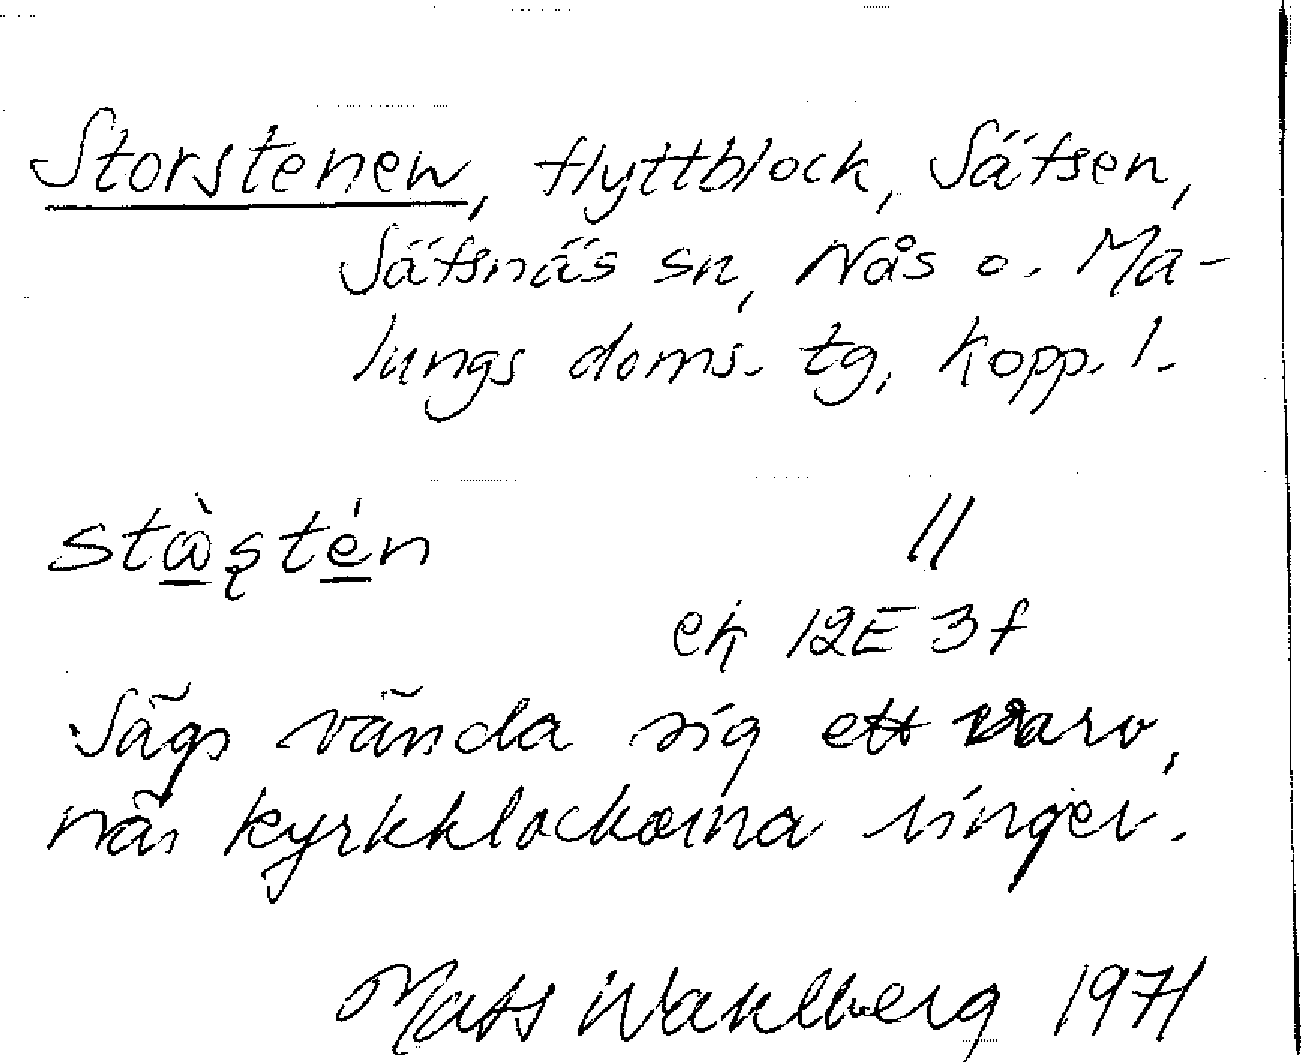 Storstenen, flyttblock, Säfsen,
Säfsnäs sn, Nås o. Ma-
lungs doms. tg, Kopp. l.
stὼs̨tén //
ek 12E 3f
Sägs vända sig ett varv,
när kyrkklockorna ringer.
Mats Wahlberg 1971